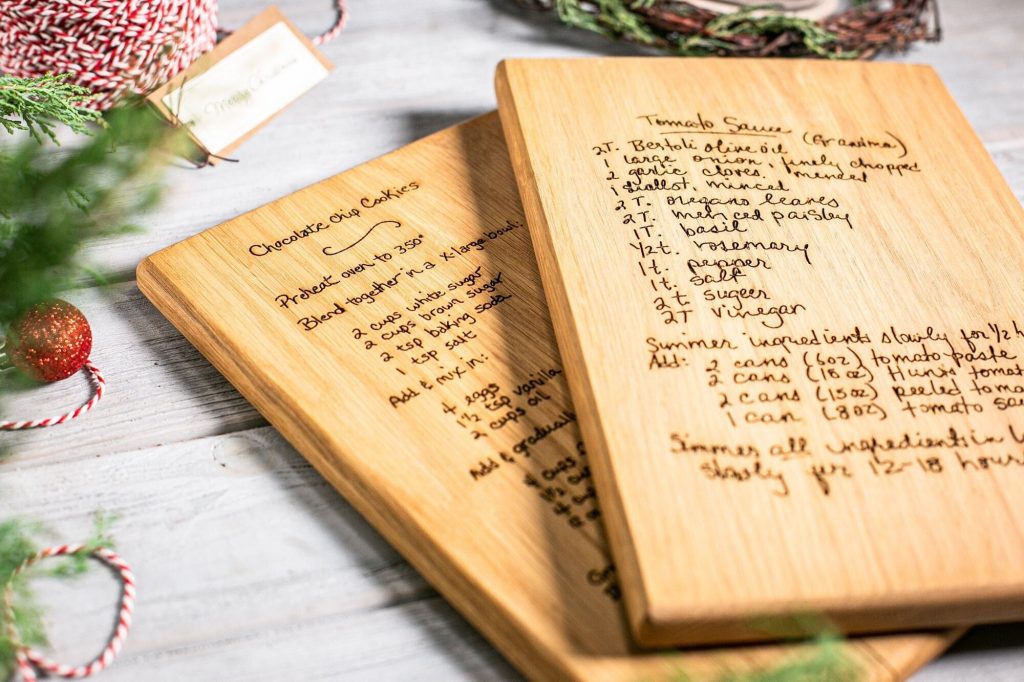 Merry Christmas
Chocolate Chip Cookies
Preheat oven to 350°
Blend together in a X-large bowl:
2 cups white sugar
2 cups brown sugar
2 tsp baking soda
1 tsp salt
Add & mix in:
4 eggs
1 1/2 tsp vanilla
2 cups oil
Add & gradually
4 cups
1 1/2 cup
Tomato Sauce (Grandma)
2T. Bertoli olive oil
1 large onion, finely chopped
2 garlic cloves, minced
1 shallot, minced
2 T. oregano leaves
2 T. minced parsley
1T. basil
1/2 t. rosemary
1t. pepper
1t. salt
2 t sugeer
2T vinegar
Simmer ingredients slowly for 1/2 h
Add: 2 cans (6oz) tomato paste
2 cans (18oz) Hunts tomat
2 cans (15oz) peeled toma
1 can (8oz) tomato sa
Simmer all ingredients in
slowly for 12-18 hours